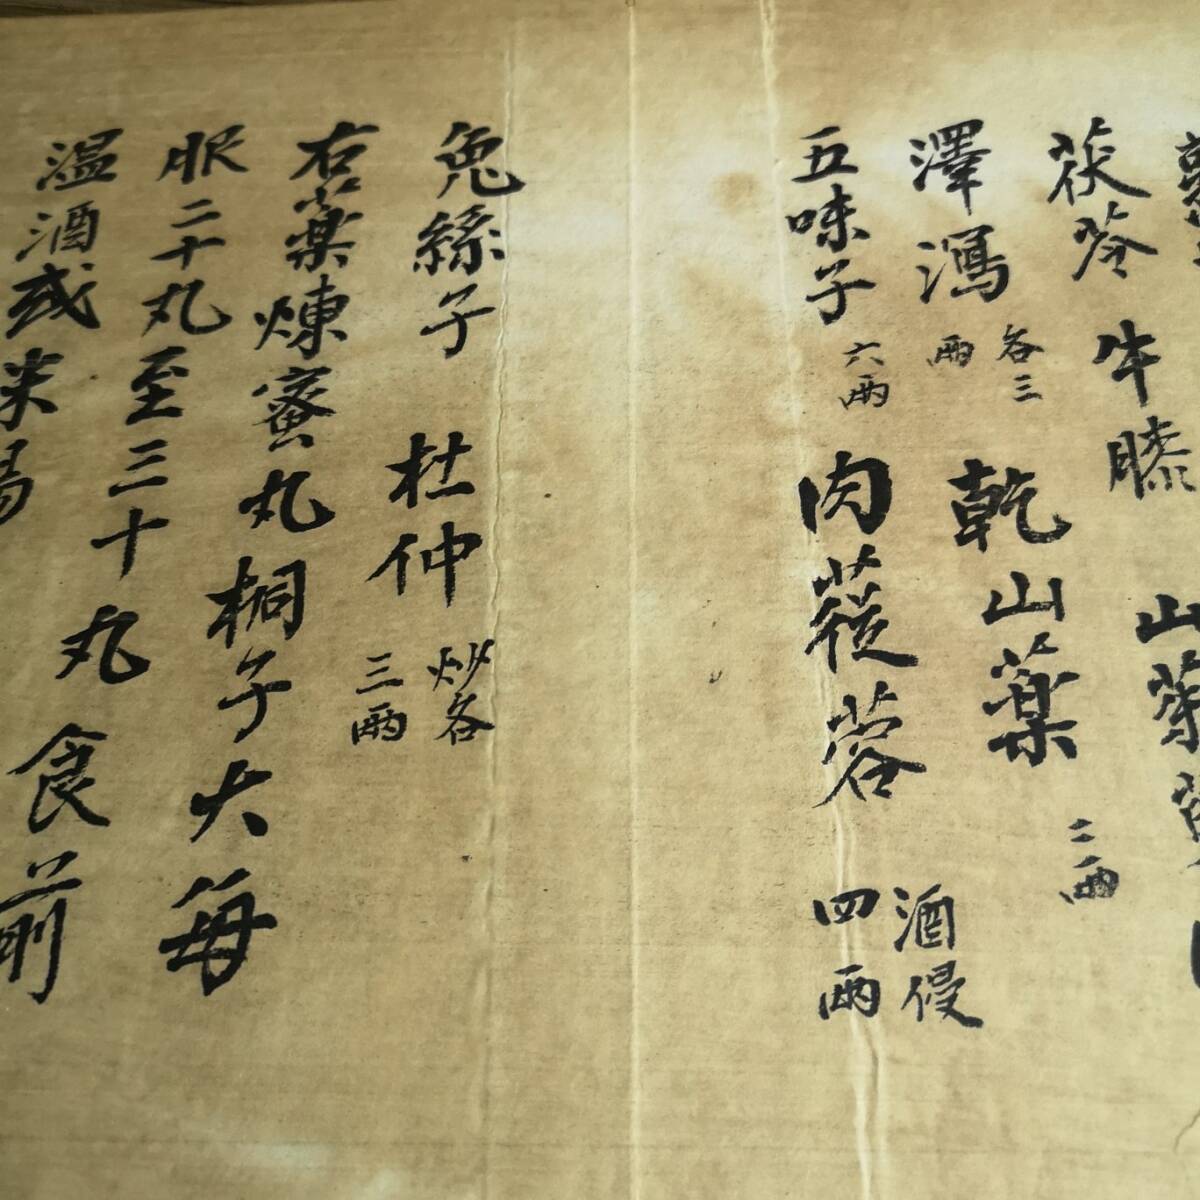 茯苓 牛膝 山茱
澤瀉 各三兩 乾山薬 二兩
五味子 六兩 肉蓯蓉 酒侵四兩
兔絲子 杜仲 炒各三兩
右為薬煉蜜丸桐子大每
服二十丸至三十丸食前
温酒或米湯